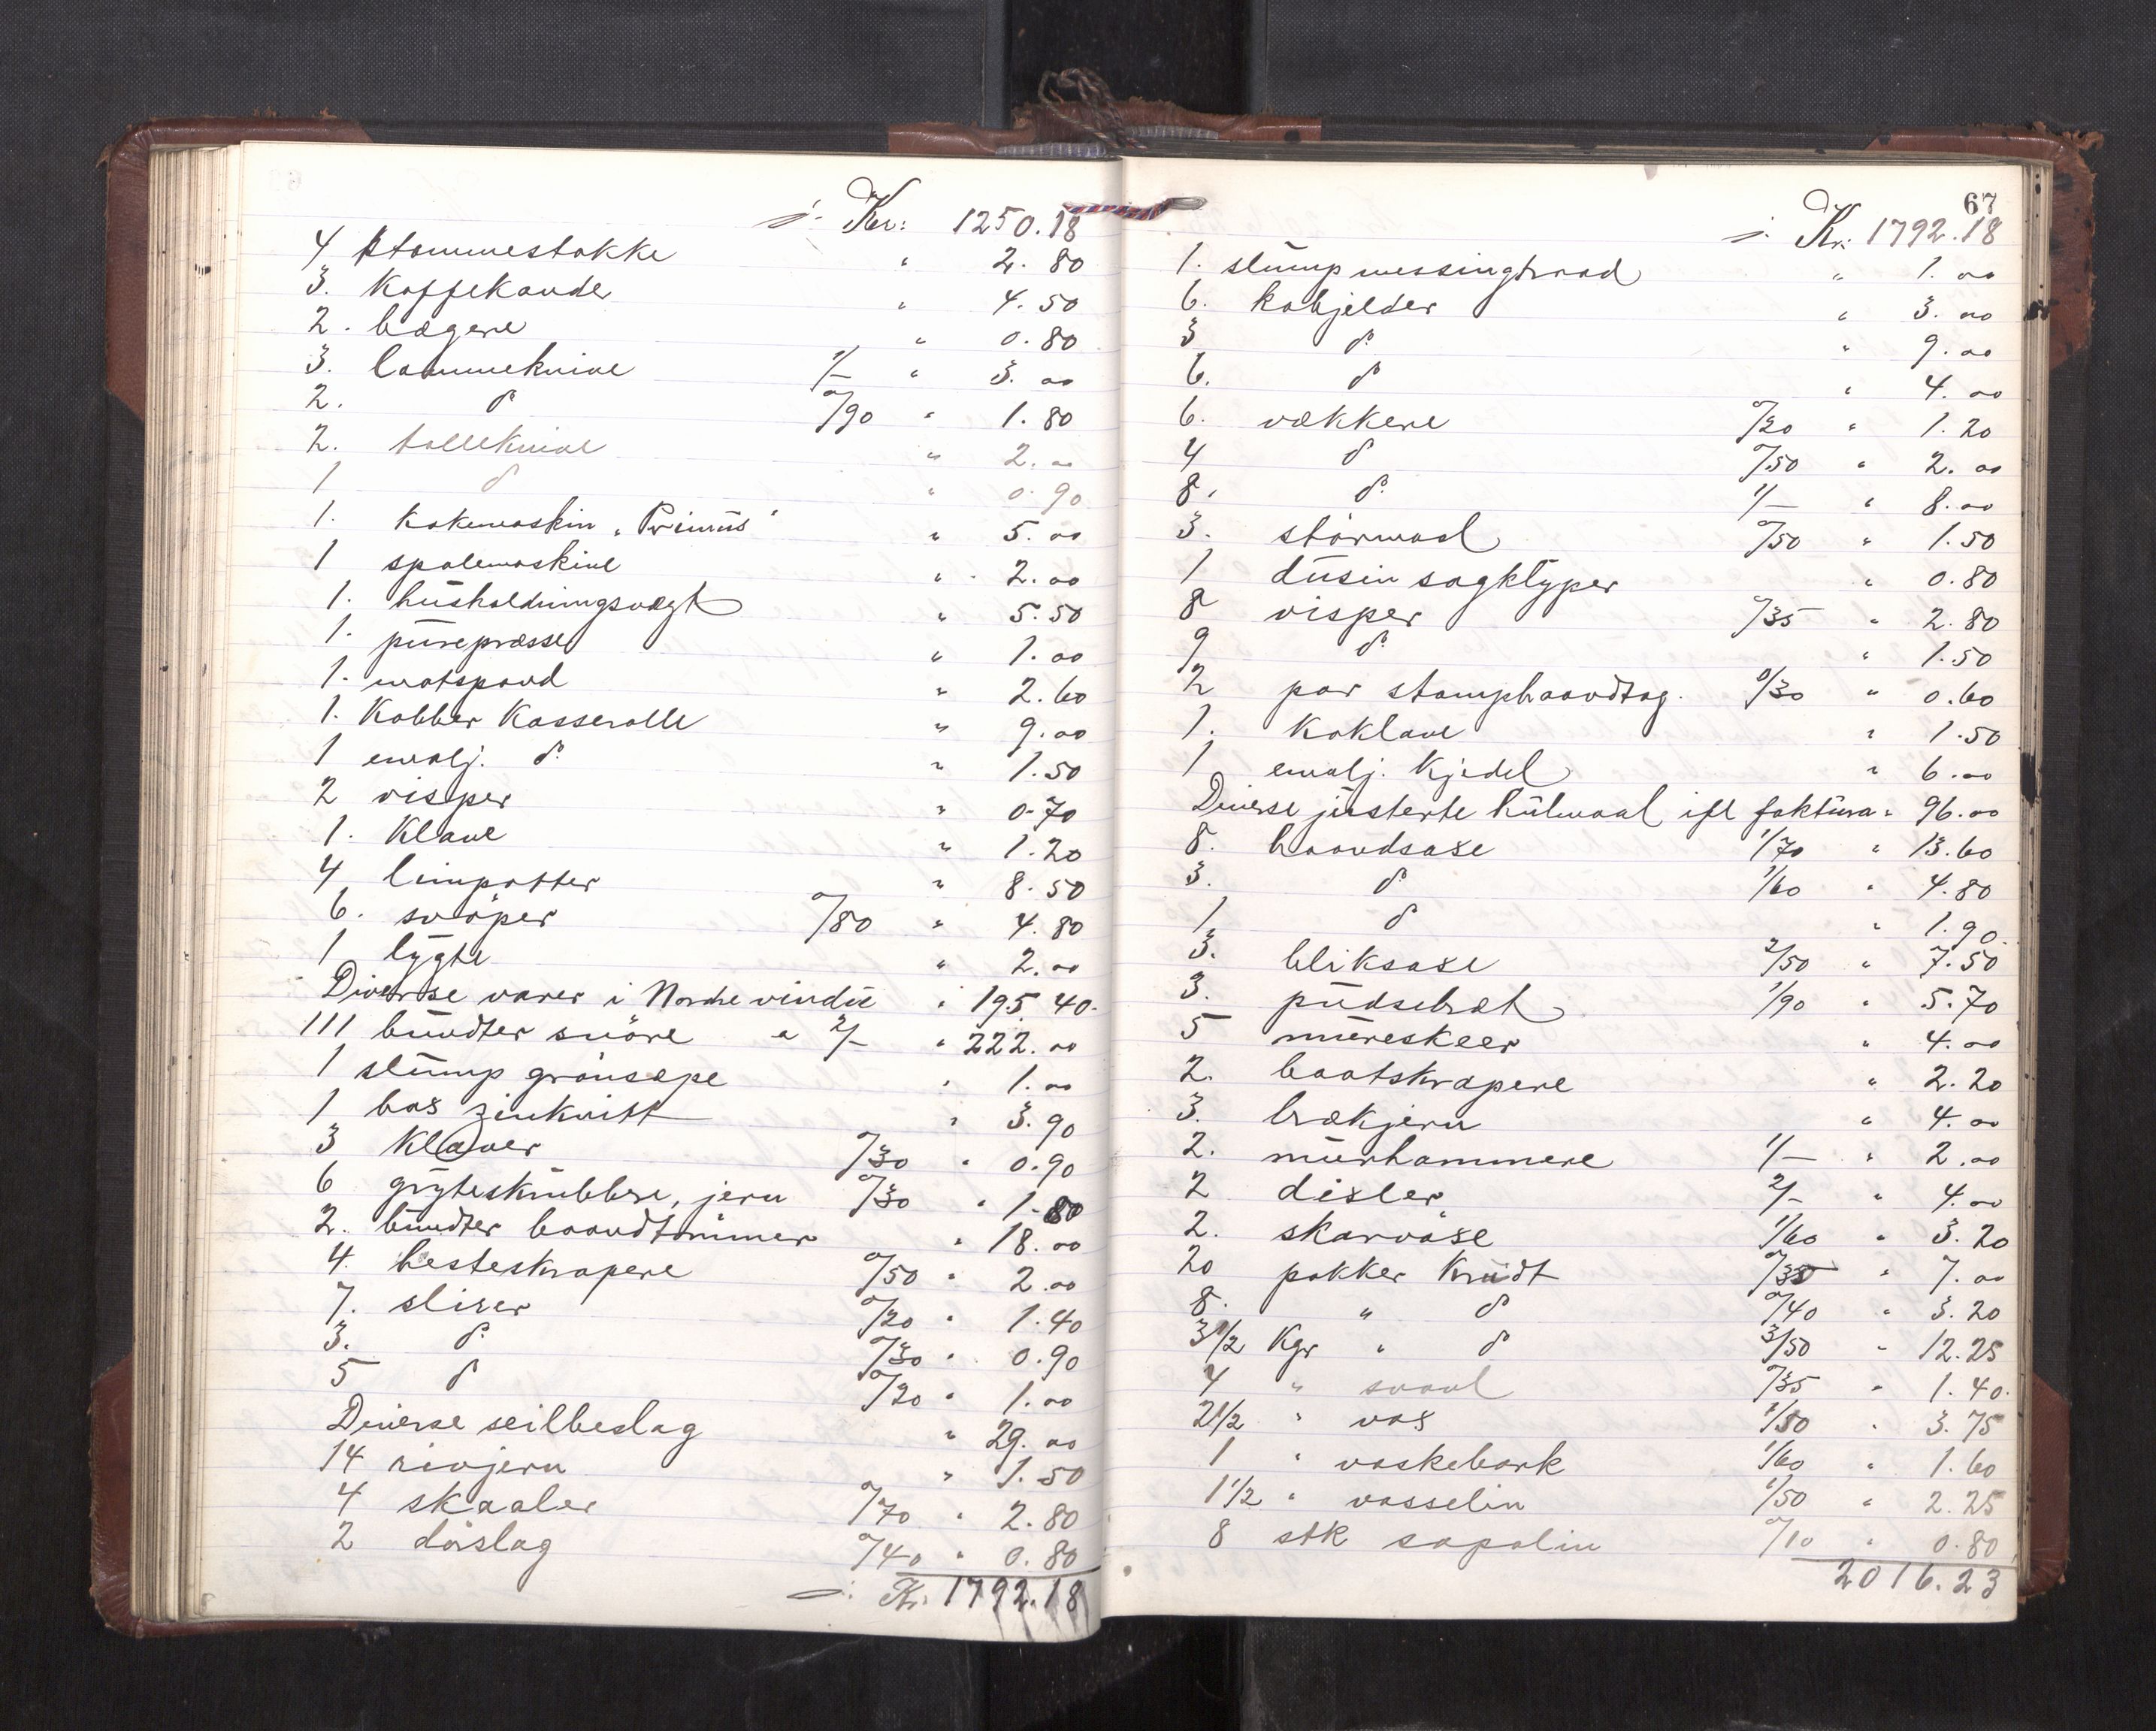 j. Kr: 1250.18
4 tommestokke " 2.80
3. Kaffekander " 4.50
2. bægere " 0.80
3. lommeknive 1/- " 3.00
2. do 0/90 " 1.80
2. tolleknive " 2.00
1 do " 0.90
1. Kokemaskin "Primus" " 5.00
1 spolemaskine " 2.00
1. husholdningsvægt " 5.50
1. pürepræsse " 1.00
1. matspand " 2.60
1. Kobber Kasserolle " 9.00
1 emalj. do " 1.50
2 visper " 0.70
1. Klave " 1.20
4 limpotter " 8.50
6. svøper 0/80 " 4.80
1 lygte " 2.00
Diverse varer i Nordre vindü " 195.40
111 bundter snöre a 2/- " 222.00
1 slump grönsæpe " 1.00
1 bas zinkvitt " 3.90
3 Klaver 0/30 " 0.90
6 gryteskrubbere, jern 0/30 " 1.80
2. bundter baandtömmer " 18.00
4. hesteskrapere 0/50 " 2.00
7. slirer 0/20 " 1.40
3. do 0/30 " 0.90
5 do 0/20 " 1.00
Diverse seilbeslag " 29.00
14 rivjern " 1.50
4 skaaler 0/70 " 2.80
2 dörslag 0/40 " 0.80
j. Kr. 1792.18
67
j. Kr: 1792.18
1. slump messingtraad " 1.00
6. kobjelder " 3.00
3 do " 9.00
6. do " 4.00
6. vækkere 0/20 " 1.20
4 do 0/50 " 2.00
8. do 1/- " 8.00
3. 0/50 " 1.50
1 düsin sagklyper " 0.80
8 visper 0/35 " 2.80
9 do " 1.50
2 par stamphaandtag. 0/30 " 0.60
1. Koklave " 1.50
1 emalj. Kjedel " 6.00
Diverse justerte hülmaal ifl faktura " 96.00
8. haandsaxe 1/70 " 13.60
3. do 1/60 " 4.80
1 do " 1.90
3. bliksaxe 2/50 " 7.50
3. püdsebræt 1/90 " 5.70
5 müreskeer " 4.00
2. baatskrapere " 2.20
3. brækjern " 4.00
2. mürhammere 1/- " 2.00
2 dixler 2/- " 4.00
2. skarvöxe 1/60 " 3.20
20 pakker Krudt 0/35 " 7.00
8. " do 0/40 " 3.20
3 1/2 Kgr " do 3/50 " 12.25
4 " svovl 0/35 " 1.40
2 1/2 " vox 1/50 " 3.75
1 " vaskebark 1/60 " 1.60
1 1/2 " vasselin 1/50 " 2.25
8 stk sapolin 0/10 " 0.80
2016.23